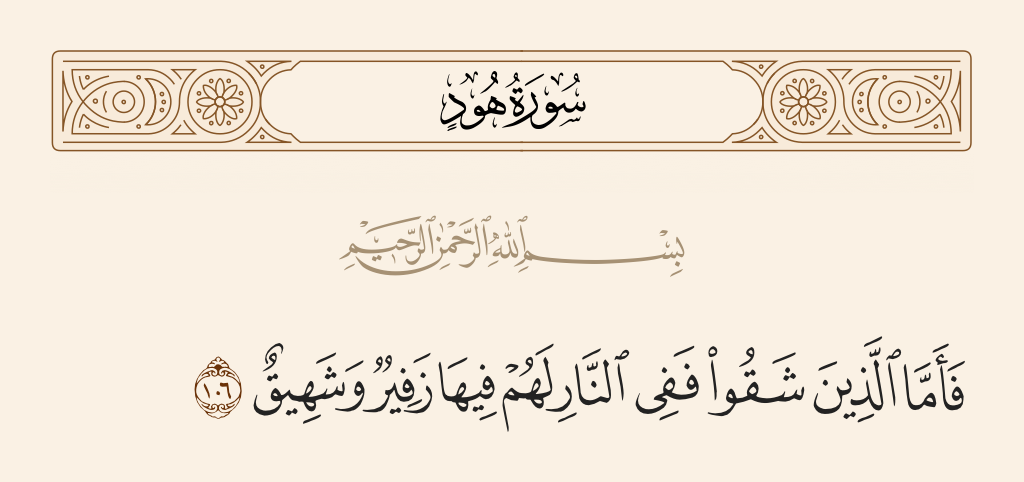 سُورَةُ هُودٍ
بِسْمِ ٱللَّهِ ٱلرَّحْمَٰنِ ٱلرَّحِيمِ
فَأَمَّا ٱلَّذِينَ شَقُوا۟ فَفِى ٱلنَّارِ لَهُمْ فِيهَا زَفِيرٌ وَشَهِيقٌ ١٠٦